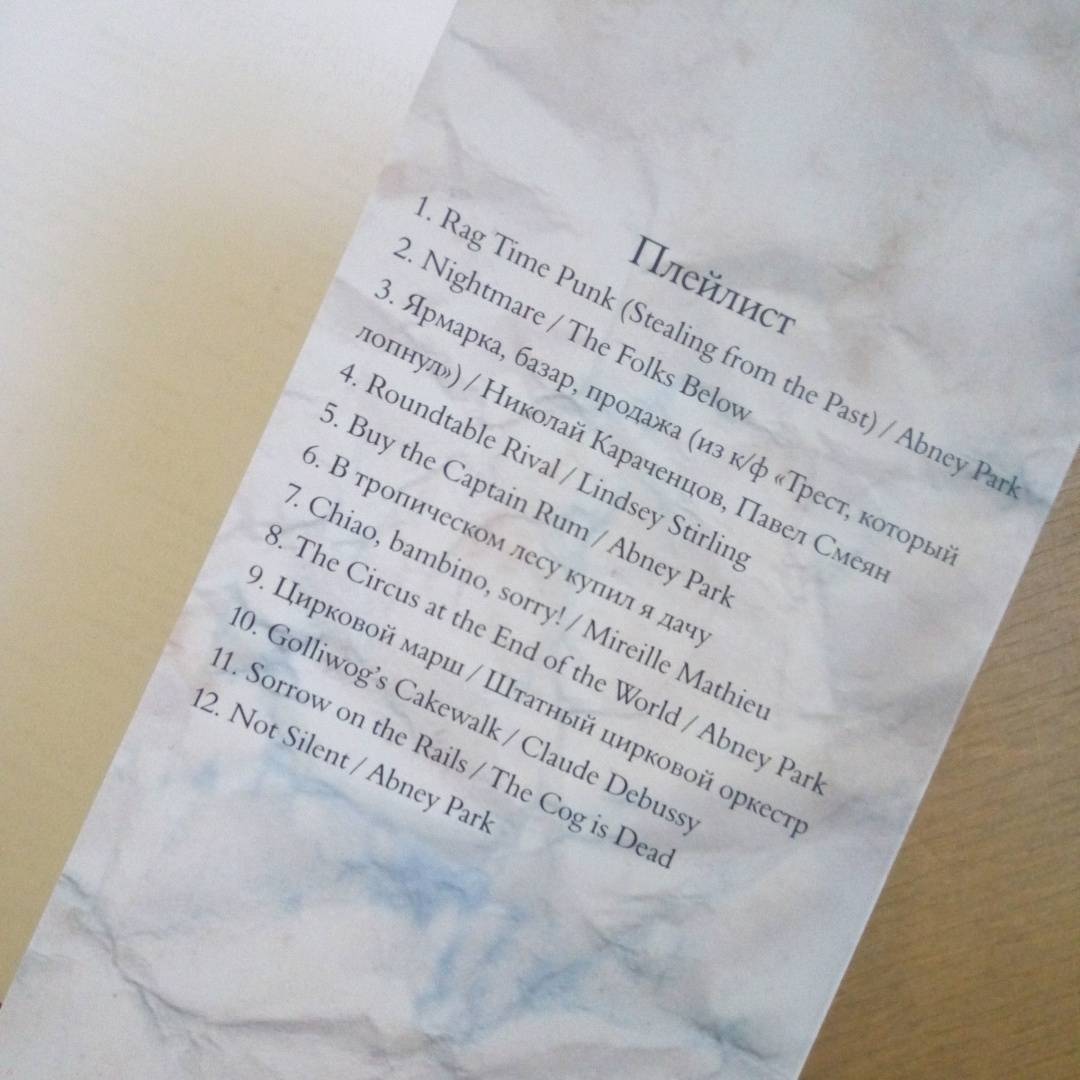 Плейлист
1. Rag Time Punk (Stealing from the Past) / Abney Park
2. Nightmare / The Folks Below
3. Ярмарка, базар, продажа (из к/ф «Трест, который
лопнул») / Николай Караченцов, Павел Смеян
4. Roundtable Rival / Lindsey Stirling
5. Buy the Captain Rum / Abney Park
6. В тропическом лесу купил я дачу
7. Chiao, bambino, sorry! / Mireille Mathieu
8. The Circus at the End of the World / Abney Park
9. Цирковой марш / Штатный цирковой оркестр
10. Golliwog’s Cakewalk / Claude Debussy
11. Sorrow on the Rails / The Cog is Dead
12. Not Silent / Abney Park